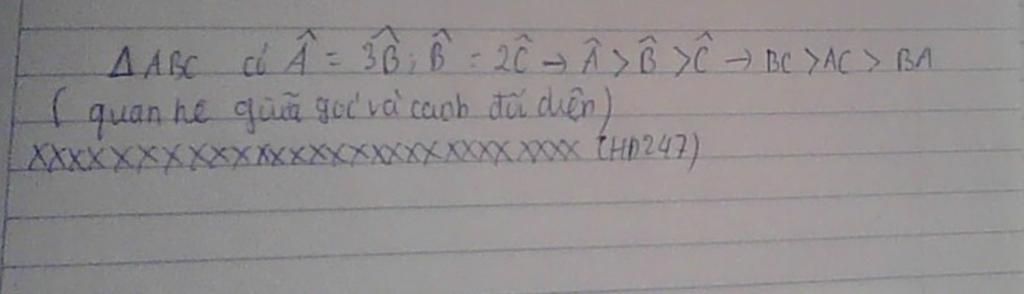 Δ ABC có Â = 3B̂; B̂ = 2Ĉ → Â > B̂ > Ĉ → BC > AC > BA
( quan hệ giữa góc và cạnh đối diện)
xxxxxxxxxxxxxxxxxxxxxxxx (HD247)